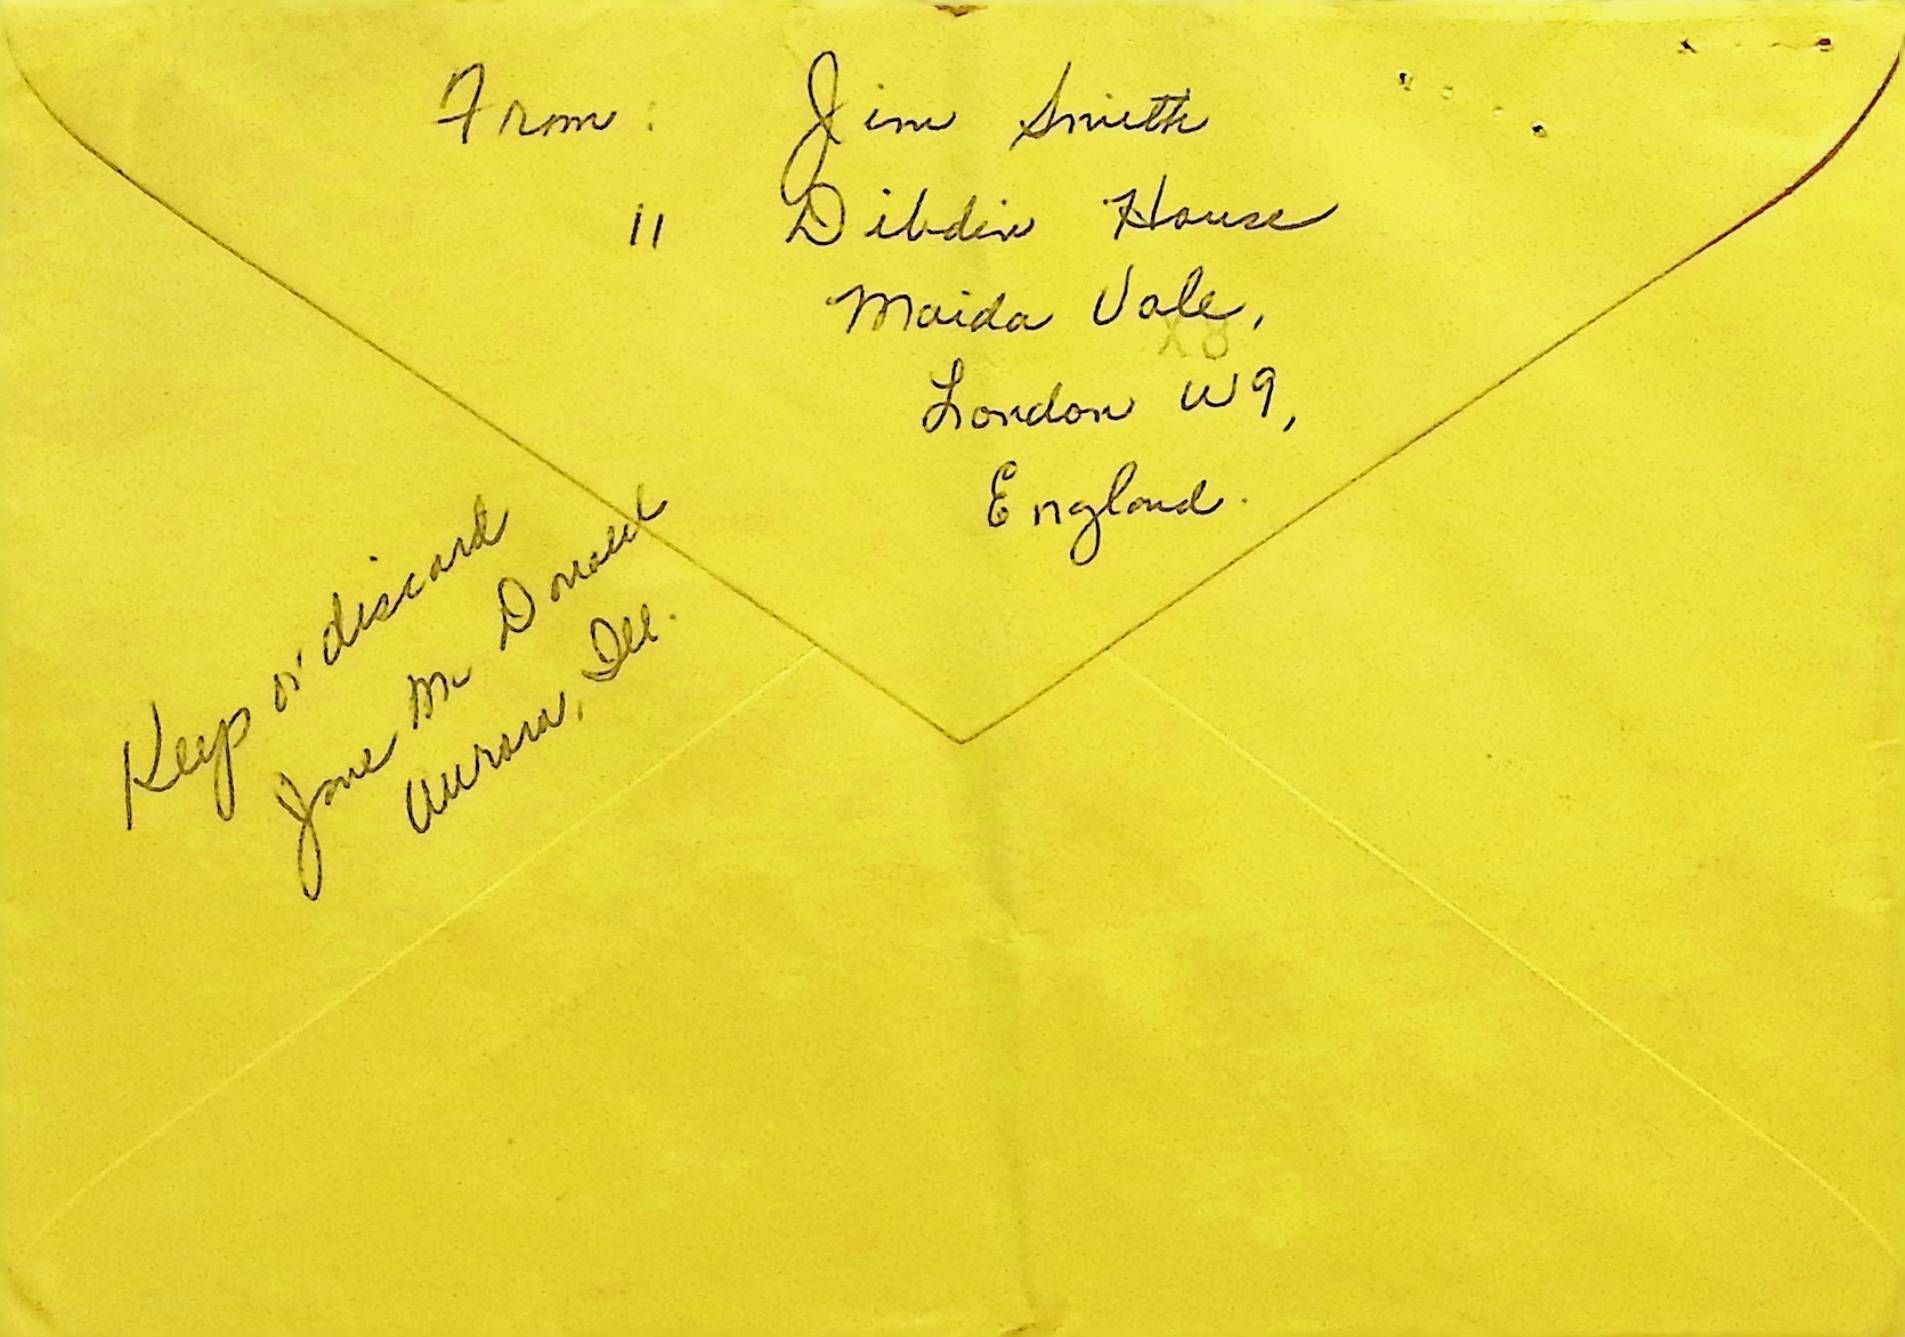 From: Jim Smith
11 Dibdin House
Maida Vale,
London W9,
England.
Keep or discard
Jane Mc Donald
Aurora, Ill.